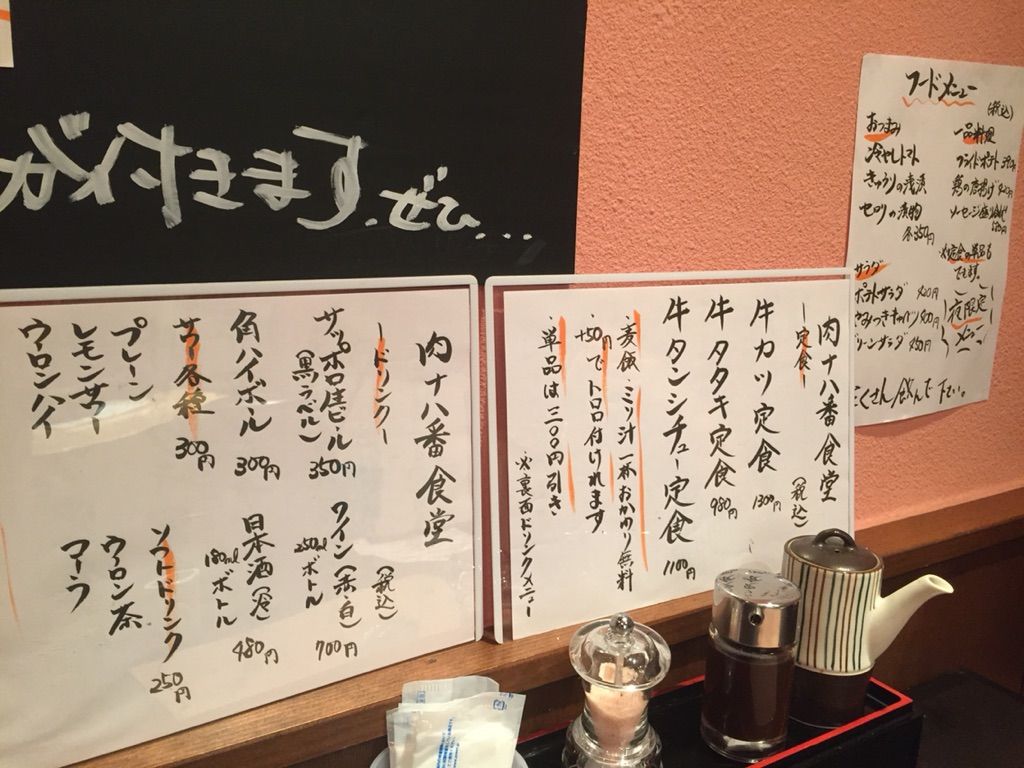 が付きます。ぜひ...
肉ナハ番食堂
(税込)
ードリンクー
サッポロ生ビール
(黒ラベル)
350円
角ハイボール
300円
サワー各種
300円
プレーン
レモンサワー
ウーロンハイ
ワイン(赤・白)
250mlボトル
700円
日本酒(冷)
180mlボトル
480円
ソフトドリンク
250円
ウーロン茶
コーラ
肉ナハ番食堂
(税込)
ー定食ー
牛カツ定食
1300円
牛タタキ定食
980円
牛タンシチュー定食
1100円
・麦飯・ミソ汁一杯おかわり無料
・+50円でトロロ付けれます
・単品は二〇〇円引き
※裏面ドリンクメニュー
フードメニュー
(税込)
おつまみ
冷やしトマト
きゅうりの浅漬
セロリの漬物
各350円
サラダ
ポテトサラダ
一品料理
フライドポテト
鶏の唐揚げ
※定食の単品も
できます。
夜限定
メニュー